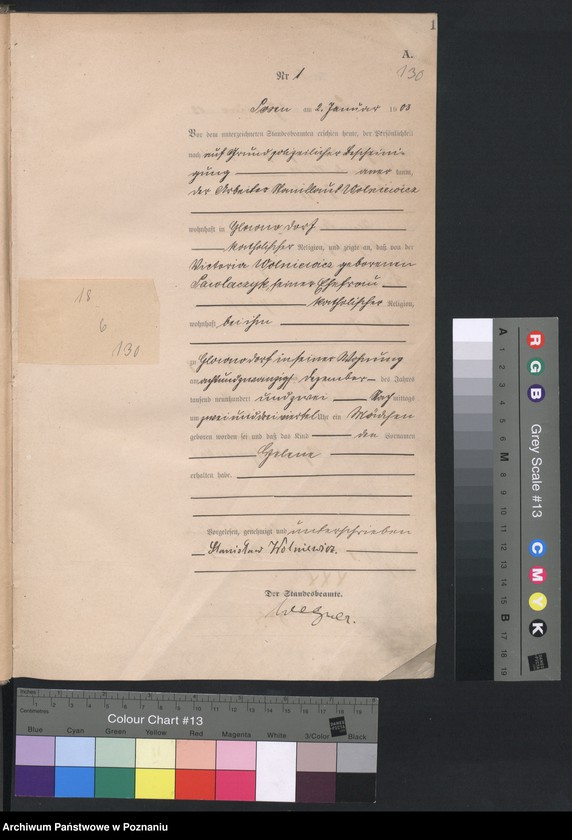 1
A.
130
Nr 1
am 2. Januar 1903
Vor dem unterzeichneten Standesbeamten erschien heute, der Persönlichkeit
nach auf Grund polizeilicher Bescheini-
gung aner kannt,
der Arbeiter Stanislaus Wolniewicz
wohnhaft in dorf
katholischer Religion, und zeigte an, daß von der
Victoria Wolniewicz geborenen
seiner Ehefrau
katholischer Religion,
wohnhaft bei ihm
18
6
130
zu in seiner Wohnung
am achtundzwanzigsten Dezember des Jahres
tausend neunhundert und zwei Nachmittags
um zwei und drei viertel Uhr ein Mädchen
geboren worden sei und daß das Kind den Vornamen
Helene
erhalten habe.
Vorgelesen, genehmigt und unterschrieben
Stanisław Wolniewicz.
Der Standesbeamte.
Inches
Centimetres
Colour Chart #13
Blue Cyan Green Yellow Red Magenta White 3/Color Black
Grey Scale #13
R G B C M Y K
A 1 2 3 4 5 6 M 8 9 10 11 12 13 14 15 B 17 18 19
Archiwum Państwowe w Poznaniu